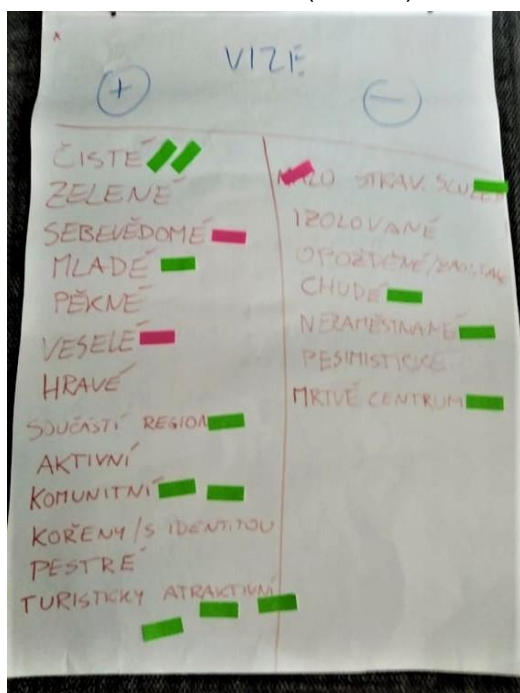 VIZE
+
-
ČISTÉ
ZELENÉ
SEBEVĚDOMÉ
MLADÉ
PĚKNÉ
VESELÉ
HRAVÉ
SOUČÁSTÍ
AKTIVNÍ
KOMUNITNÍ
KOŘENY/S IDENTITOU
PESTRÉ
TURISTICKY ATRAKTIVNÍ
STRAV.
IZOLOVANÉ
CHUDÉ
NEZAMĚSTNANÉ
PESIMISTICKÉ
MRTVÉ CENTRUM